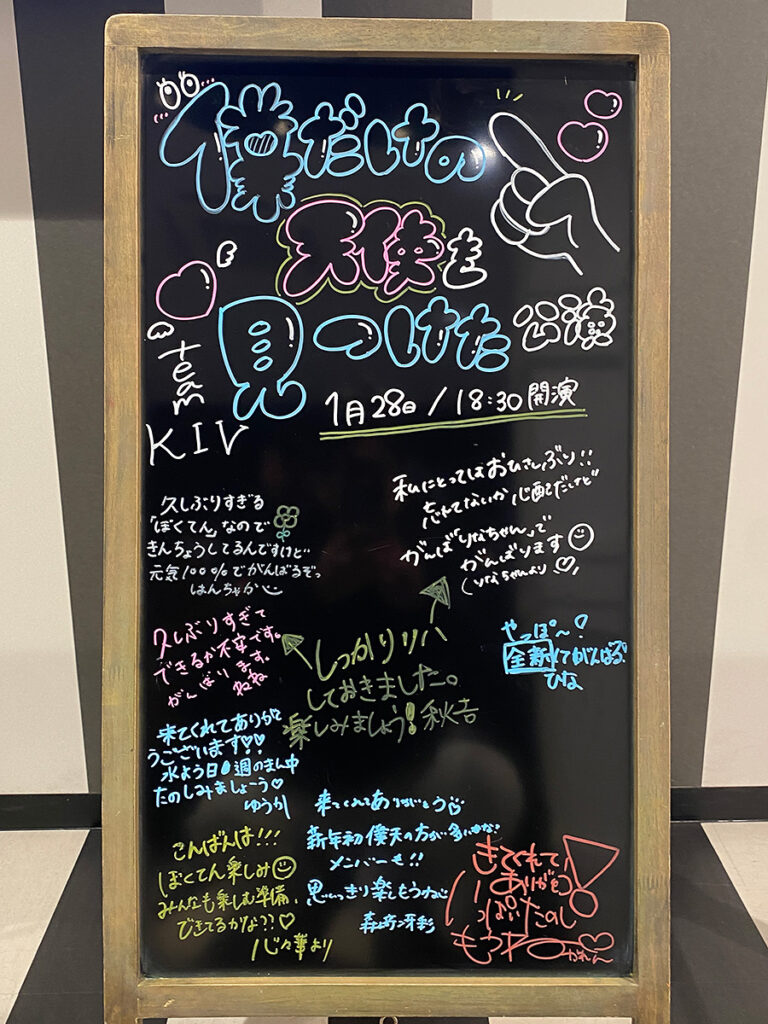 僕だけの
天使を
見つけた 公演
team
KIV
1月28日/18:30開演
私にとってはおひさしぶり!!
忘れてないか心配だけど
がんば「りなちゃん」で
がんばります
(りなちゃんより♡)
久しぶりすぎる
「ぼくてん」なので
きんちょうしてるんですけど
元気100%でがんばるぞっ
はんちゃか
久しぶりすぎて
できるか不安です。
がんばります。
ねね
しっかりリハ
しておきました。
楽しみましょう!秋吉
やっぽ〜!
全新でがんばる!
ひな
来てくれてありがと
うございます♡♡
水よう日 週のまん中
たのしみましょーう♡
ゆうか
来てくれてありがとう
新年初僕天の方が多いかな?
メンバーも!!
思いっきり楽しもうねぃ
森﨑冴彩
こんばんは!!!
ぼくてん楽しみ
みんなも楽しむ準備、
できてるかな??♡
心々華より
きてくれて
ありがとう!
いっぱいたのし
もうねー♡
かれん